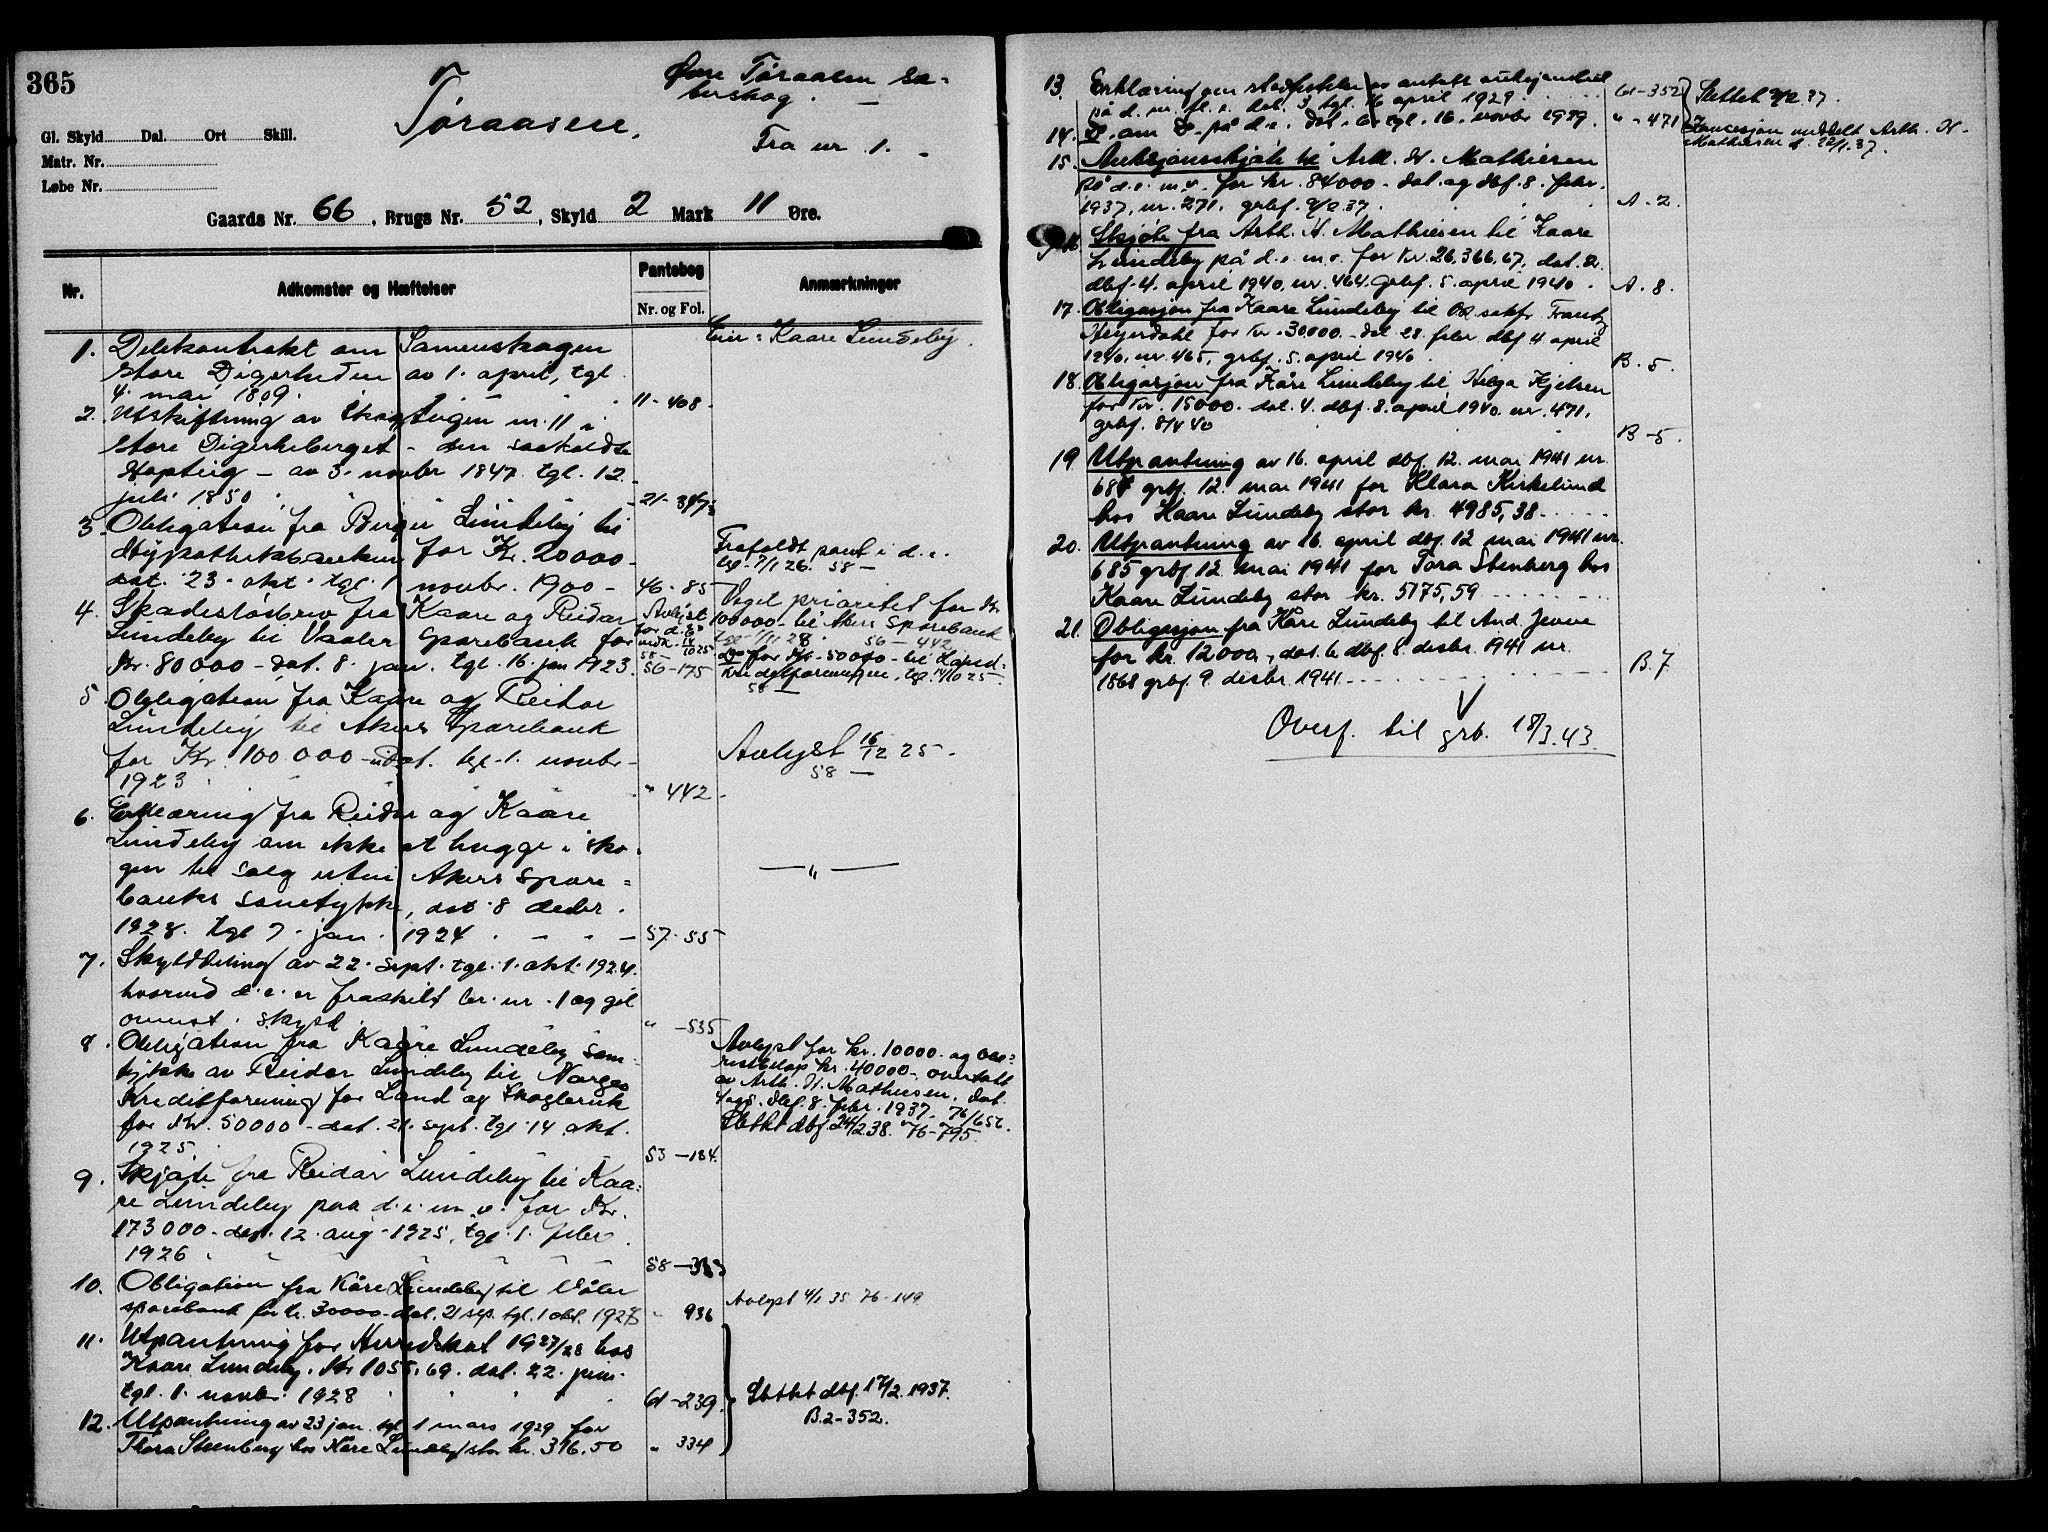 365
Tøraasen.
Øvre Tøraasen
Fra nr. 1.
Gl. Skyld Dal. Ort Skill.
Matr. Nr.
Løbe Nr.
Gaards Nr. 66, Brugs Nr. 52, Skyld 2 Mark 11 Øre.
Nr. Adkomster og Hæftelser Pantebog Anmærkninger
Nr. og Fol.
Eier: Kaare Lundeby.
1. Delekontrakt om Sameieskogen
store Digerheden av 1. april, tgl.
4. mai 1809. 11-408
2. Utskiftning av Skogteigen nr. 11 i
store Digerheberget - den saakaldte
- av 3. novbr 1847. tgl. 12.
juli 1850
3. Obligation fra Birger Lundeby til
Hypothekbanken for Kr. 20000-
dat. 23. okt. tgl. 1 novbr. 1900 - 46-85
Frafaldt pant i d.e.
tgl. 7/1 26. 58 -
4. Skadesløsbrev fra Kaare og Reidar
Lundeby til Vaaler Sparebank for
Kr. 80000 - dat. 8. jan. tgl. 16. jan 1923. 56-175
Avlyst
for d. e.
Veget prioritet for Kr
100000 - til Akers Sparebank
56 - 442
Do for Kr. 50000 - til Kred.
58
5 Obligation fra Kaare og Reidar
Lundeby til Akers Sparebank
for Kr. 100000 - udat. tgl. 1. novbr
1923 " 442
Avlyst 16/12 25.
58 -
6. Erklæring fra Reidar og Kaare
Lundeby om ikke at hugge i sko-
gen til salg uten Akers Spare=
banks samtykke, dat. 8 decbr.
1923. tgl 7. jan. 1924. 57-55
- " -
7. Skylddeling av 22. sept. tgl. 1. okt. 1924.
hvorved d. e. er fraskilt br. nr. 1 og git
skyld. " -535
8. Obligation fra Kaare Lundeby sam-
tykke av Reidar Lundeby til Norges
Kreditforening for Land og Skogbruk
for Kr. 50000 - dat. 21. sept. tgl. 14 okt.
1925. 53 -184.
Avlyst for kr. 10000. og
restbeløp kr. 40000 -, overtatt
av Arth. H. Mathiesen, dat.
dbf. 8. febr. 1937. 76/656.
Slettet dbf. 24/2 38. 76-795.
9. Skjøte fra Reidar Lundeby til Kaa=
re Lundeby paa d. e. m. v. for Kr.
173000 - dat. 12. aug - 1925, tgl. 1. febr.
1926
10. Obligation fra Kåre Lundeby til Våler
sparebank for kr. 30000 - dat. 21 sep. tgl. 1 okt. 1927 " 936
Avlyst 4/1 35 76-149
11. Utpantning for Herredskat 1927/28 hos
Kaare Lundeby. Kr 1055.69. dat. 22. juni.
tgl. 1. novbr. 1928 61-239.
Slettet dbf. 17/2. 1937.
B.2-352.
12. Utpantning av 23 jan. tgl. 1 mars 1929 for
Thora Steenberg hos Kåre Lundeby stor kr. 316.50 " 334
13. Erklæring om stadfestelse av antatt auksjonsbud
på d. m. fl. e. dat. 3. tgl. 16 april 1929. 61-352
Slettet 9/2. 37.
14. Do. om Do. på d. e. dat. 6. tgl. 16. novbr 1929. " -471
Konsesjon meddelt Arth. H.
Mathiesen d. 22/1. 37.
15. Auksjonsskjøte til Arth. H. Mathiesen
på d. e. m. v. for kr. 84000 - dat. og dbf. 8. febr.
1937, nr. 271. grbf. 9/2 37. A.2.
16 Skjøte fra Arth. H. Mathiesen til Kaare
Lundeby på d. e. m. v. for kr. 26.366,67, dat. 2.
dbf. 4. april 1940, nr. 464. grbf. 5. april 1940. A.8.
17. Obligasjon fra Kaare Lundeby til O.r.sakfr. Frantz
Heyerdahl for kr. 30000. - dat. 28. febr. dbf 4 april
1940. nr. 465, grbf. 5. april 1940. B.5.
18. Obligasjon fra Kåre Lundeby til Helga Kjelsen
for kr. 15000. dat. 4. dbf. 8. april 1940. nr. 471.
grbf. 8/4 40 B-5.
19. Utpantning av 16. april dbf. 12. mai 1941 nr.
684 grbf. 12. mai 1941 for Klara Kirkelund
hos Kaare Lundeby stor kr. 4985,38.
20. Utpantning av 16. april dbf. 12 mai 1941 nr.
685 grbf. 12. mai 1941 for Tora Stenberg hos
Kaare Lundeby stor kr. 5175,59
21. Obligasjon fra Kåre Lundeby til And. Jevne
for kr. 12000, dat. 6. dbf. 8. desbr. 1941 nr.
1868 grbf. 9. desbr. 1941. B.7.
Overf. til grb. 18/3.43.